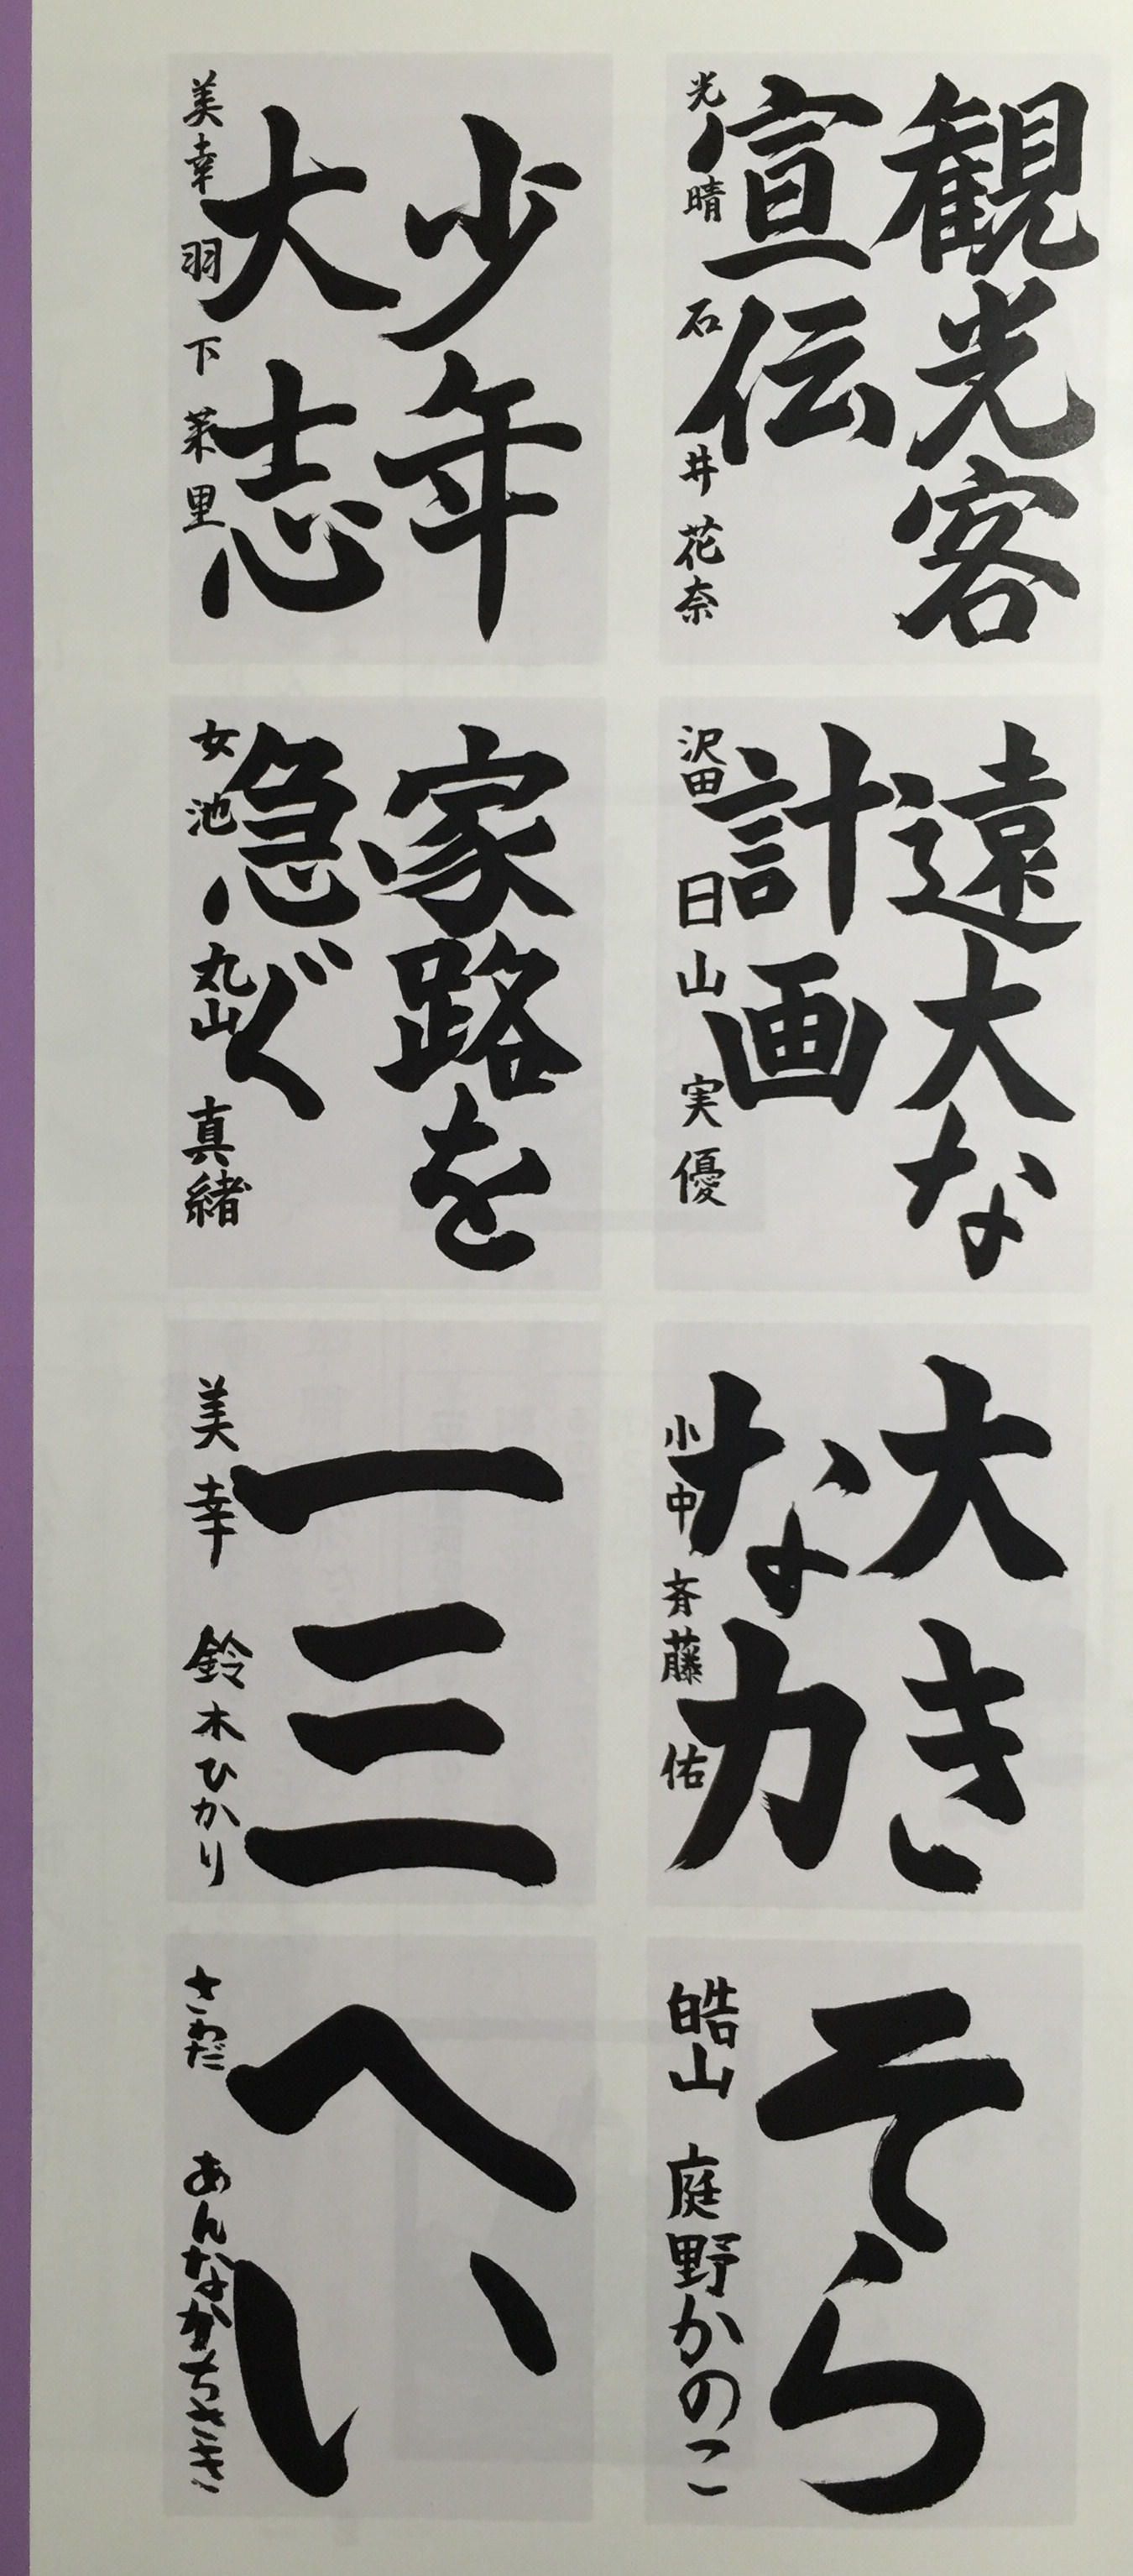 観光客
宣伝
光ノ晴 石井花奈
少年
大志
美幸 羽下茉里
遠大な
計画
沢田 日山実優
家路を
急ぐ
女池 丸山真緒
大き
な力
小中 斉藤佑
一三
美幸 鈴木ひかり
そら
皓山 庭野かのこ
へい
さわだ あんなかちさき